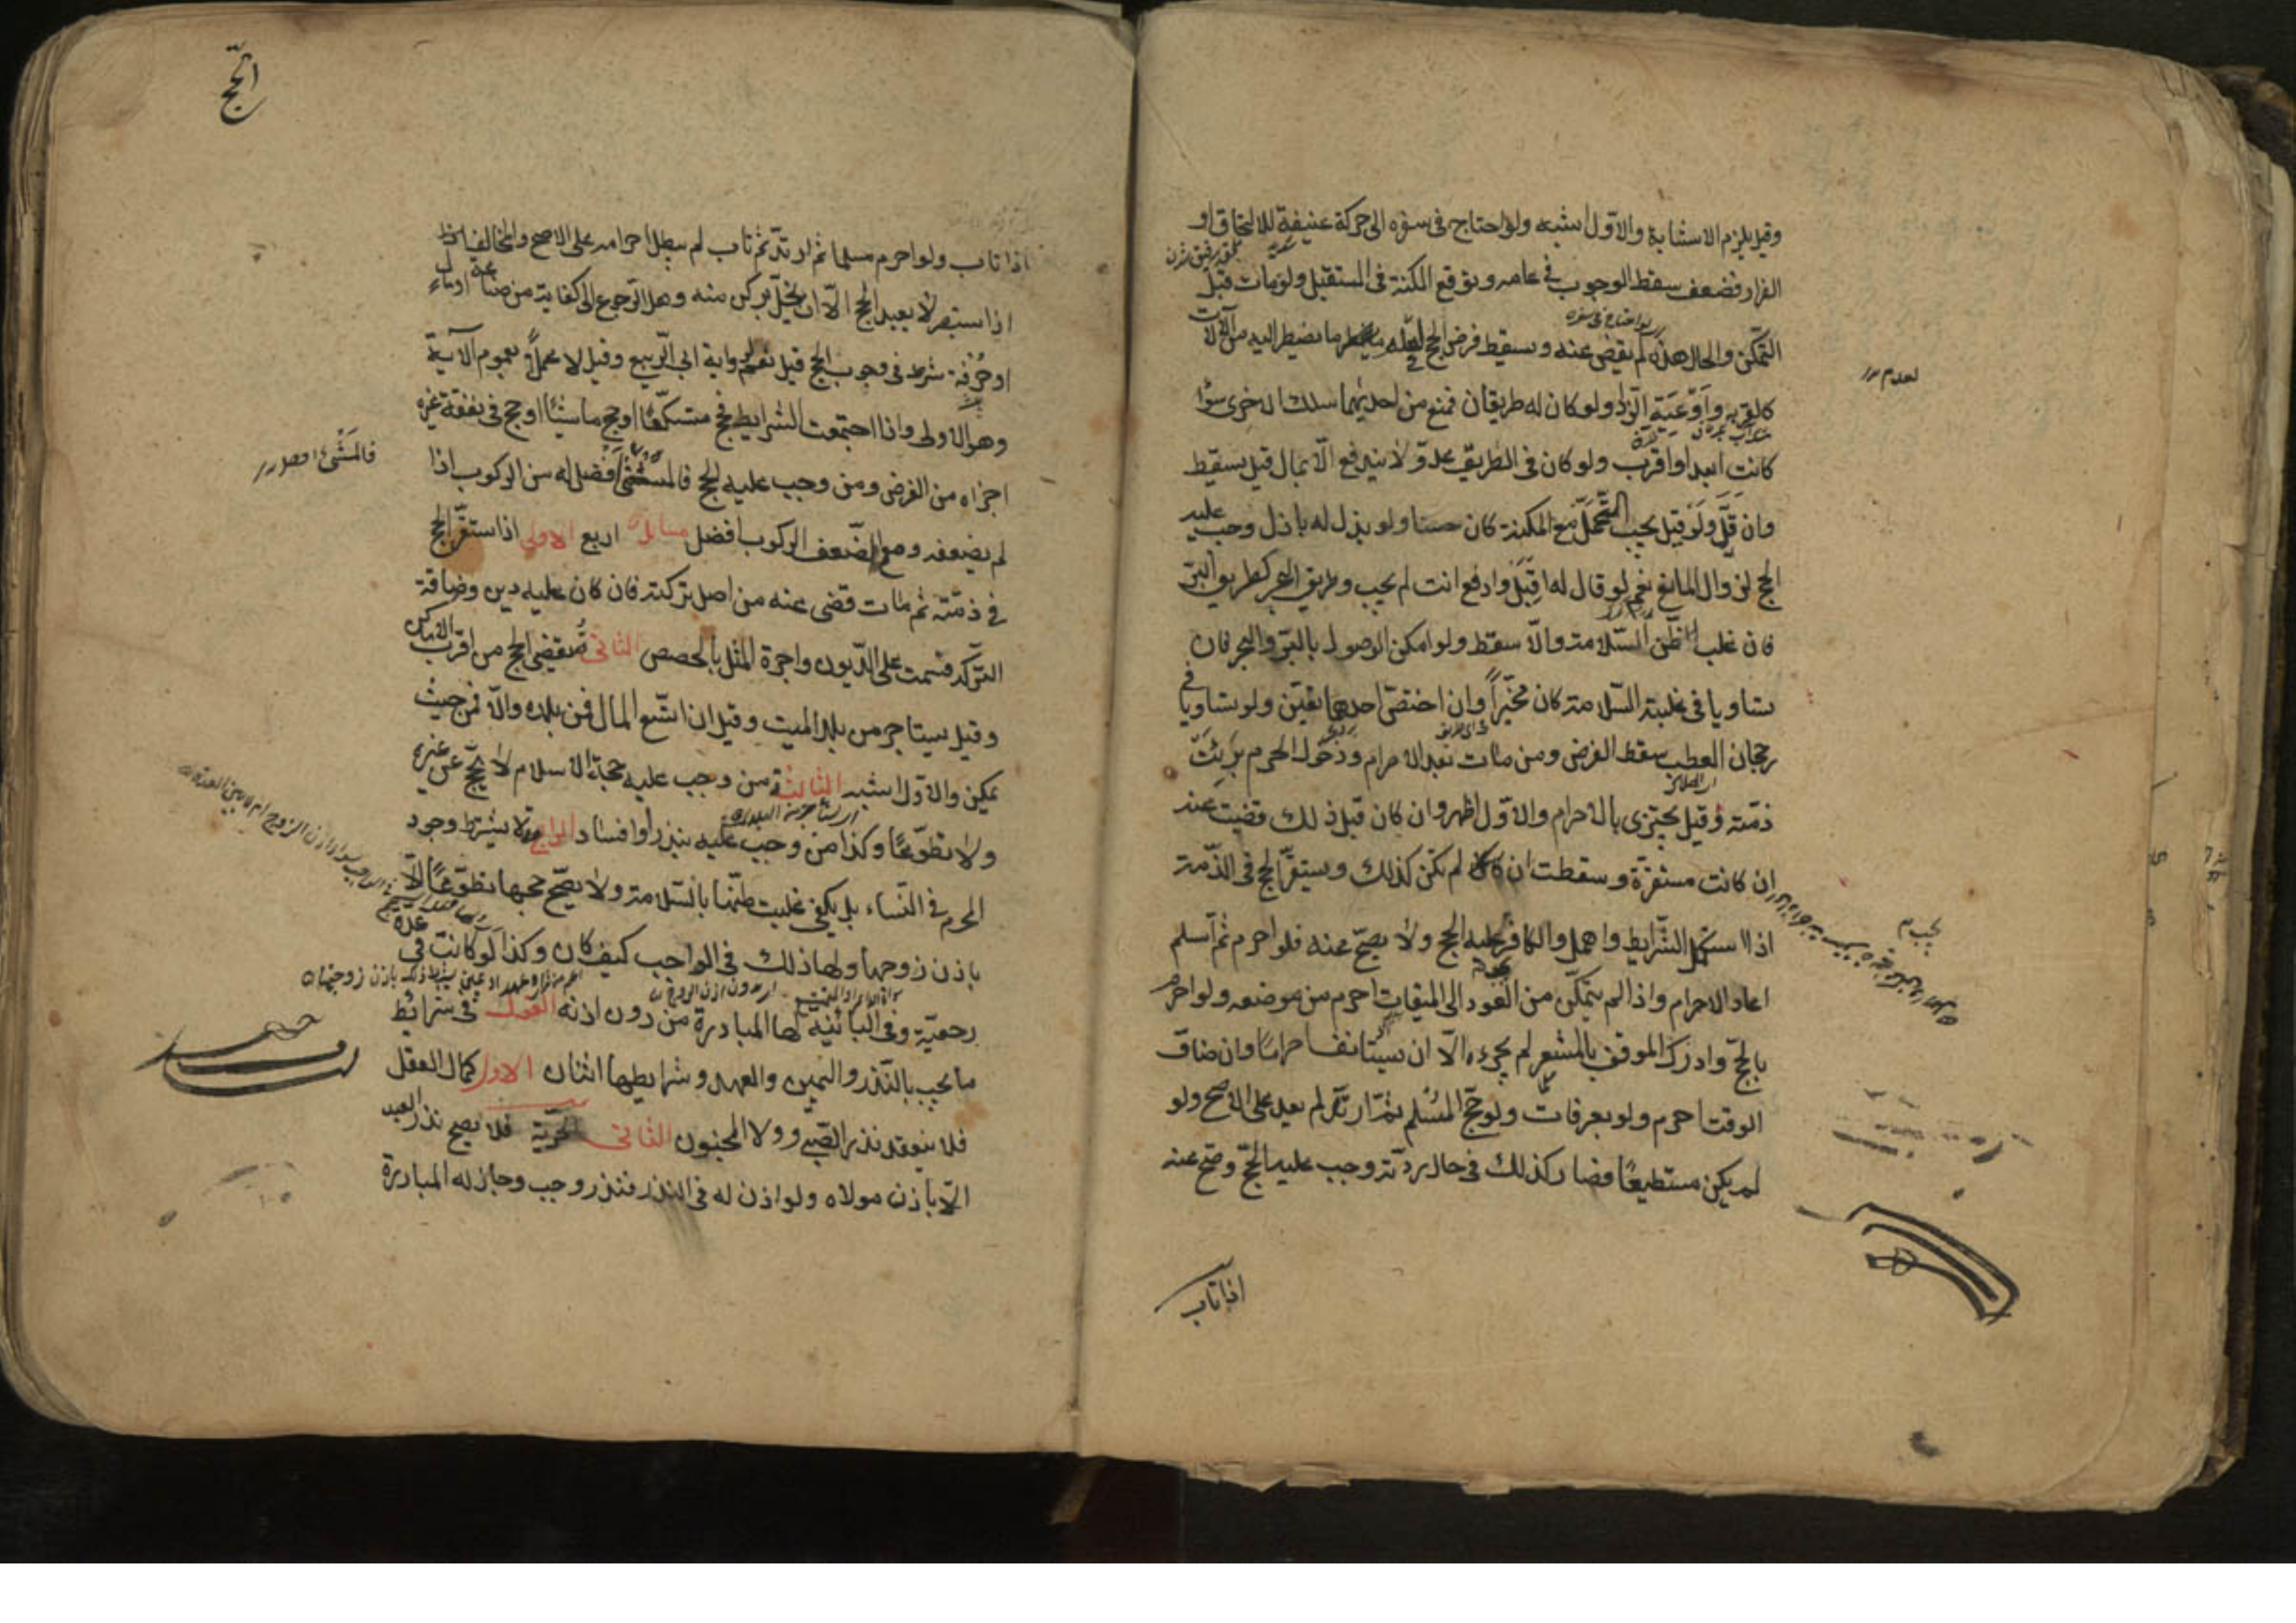 وقيل يلزم الاستنابة والاوّل اشبه ولو احتاج فى سفره الى حركة عنيفة للالتحاق او
الفرار فضعف سقط الوجوب فى عامه وتوقع المكنة فى المستقبل ولو مات قبل
التمكّن والحال هذه لم يقض عنه ويسقط فرض الحج لعدم ما يضطر اليه من الآلات
كالقربه واَوْعَيَةِ الزاد ولو كان له طريقان فمنع من احديهما سلك الاخرى سواء
كانت ابعد او اقرب ولو كان فى الطريق عدوّ لا يندفع الّا بمال قيل يسقط
وان قَلَّ وَلَو قيل يجب التحمّل مع المكنة كان حسنا ولو بذل له باذل وجب عليه
الحج لزوال المانع نعم لو قال له اِقْبَلْ وادفع انت لم يجب وطريق البحر كطريق البرّ
فان غلب الظّن السّلامة والّا سقط ولو امكن الوصول بالبرّ والبحر فان
تساويا فى غلبة السّلامة كان مخيّراً وان اختصّ احدهما تعيّن ولو تساويا فى
رجحان العطب سقط الفرض ومن مات بعد الاحرام ودخول الحرم برئتْ
ذمّته وقيل يجتزى بالاحرام والاوّل اظهر وان كان قبل ذلك قضيت عنه
ان كانت مستقرّة وسقطت ان لم تكن كذلك ويستقرّ الحج فى الذّمة
اذا استكمل الشّرايط واهمل والكافر يجب عليه الحج ولا يصحّ منه فلو احرم ثم اسلم
اعاد الاحرام واذا لم يتمكّن من العود الى الميقات احرم من موضعه ولو احرم
بالحجّ وادرك الموقف بالمشعر لم يجزءه الّا ان يستانف احراما وان ضاق
الوقت احرم ولو بعرفات ولو حجّ المسْلم ثمّ ارتدّ لم يعد على الاصح ولو
لم يكن مستطيعًا فصار كذلك فى حال ردّته وجب عليه الحجّ وصحّ منه
لعدم
يجب م
اذا تاب
الحجّ
اذا تاب ولو احرم مسلما ثم ارتدّ ثم تاب لم يبطل احرامه على الاصح والمخالف اذا
اذا استبصر لا يعيد الحج الّا ان يخلّ بركن منه وهل الرّجوع الى كفاية من صناعة او مال
او حُرْفة شرط فى وجوب الحج قيل نعم لرواية ابى الرّبيع وقيل لا عملاً بعموم الآية
وهو الاولى واذا اجتمعت الشرايط فحج متسكّعًا او حج ماشيًا او حج فى نفقة غيره
اجزاه من الفرض ومن وجب عليه الحج فالمشى افضل له من الركوب اذا
لم يضعفه ومع الضّعف الركوب افضل مسايل اربع الاولى اذا استقرّ الحج
فى ذمّته ثم مات قضى عنه من اصل تركته فان كان عليه دين وضاقة
التركه قسمت على الدّيون واجرة المثل بالحصص الثانى يُقضى الحج من اقرب الاماكن
وقيل يستاجر من بلد الميت وقيل ان اتّسع المال فمن بلده والّا فمن حيث
يمكن والاوّل اشبه الثالثة من وجب عليه حجة الاسلام لا يحجّ عن غيره
ولا تطوّعًا وكذا من وجب عليه بنذر او افساد الرابعة لا يشترط وجود
المحرم فى النّساء بل يكفى غلبت ظنّها بالسّلامة ولا يصحّ حجها تطوّعًا الّا
باذن زوجها ولها ذلك فى الواجب كيف كان وكذا لو كانت فى عدّة
رجعيّة وفى البائنه لها المبادرة من دون اذنه القول فى شرايط
ما يجب بالنّذر واليمين والعهد وشرايطها اثنان الاول كمال العقل
فلا ينعقد نذر الصّبى ولا المجنون الثانى الحريّة فلا يصح نذر العبد
الّا باذن مولاه ولو اذن له فى النذر فنذر وجب وجاز له المبادرة
فالمَشْىُ